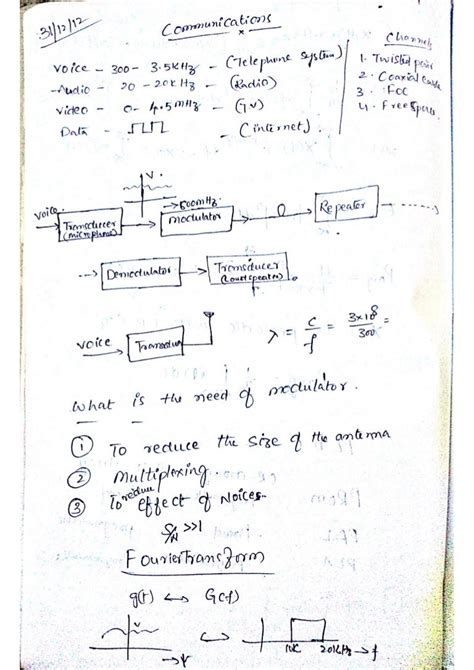 31/12/12
Communications
Channels
Voice - 300 - 3.5kHz - (Telephone System)
Audio - 20 - 20kHz - (Radio)
Video - 0 - 4.5mHz - (TV)
Data - - (internet).
1. Twisted pair
2. Coaxial Cable
3. FOC
4. Free Space
V
voice
Transducer
(microphone)
modulator
Repeater
Demodulator
Transducer
(Loudspeaker)
voice
λ = c/f = 3×10^8/300 =
What is the need of modulator.
① To reduce the size of the antenna
② Multiplexing.
③ To reduce effect of Noices.
S/N >>1
Fourier Transform
g(t) ↔ G(f)
20kHz → f